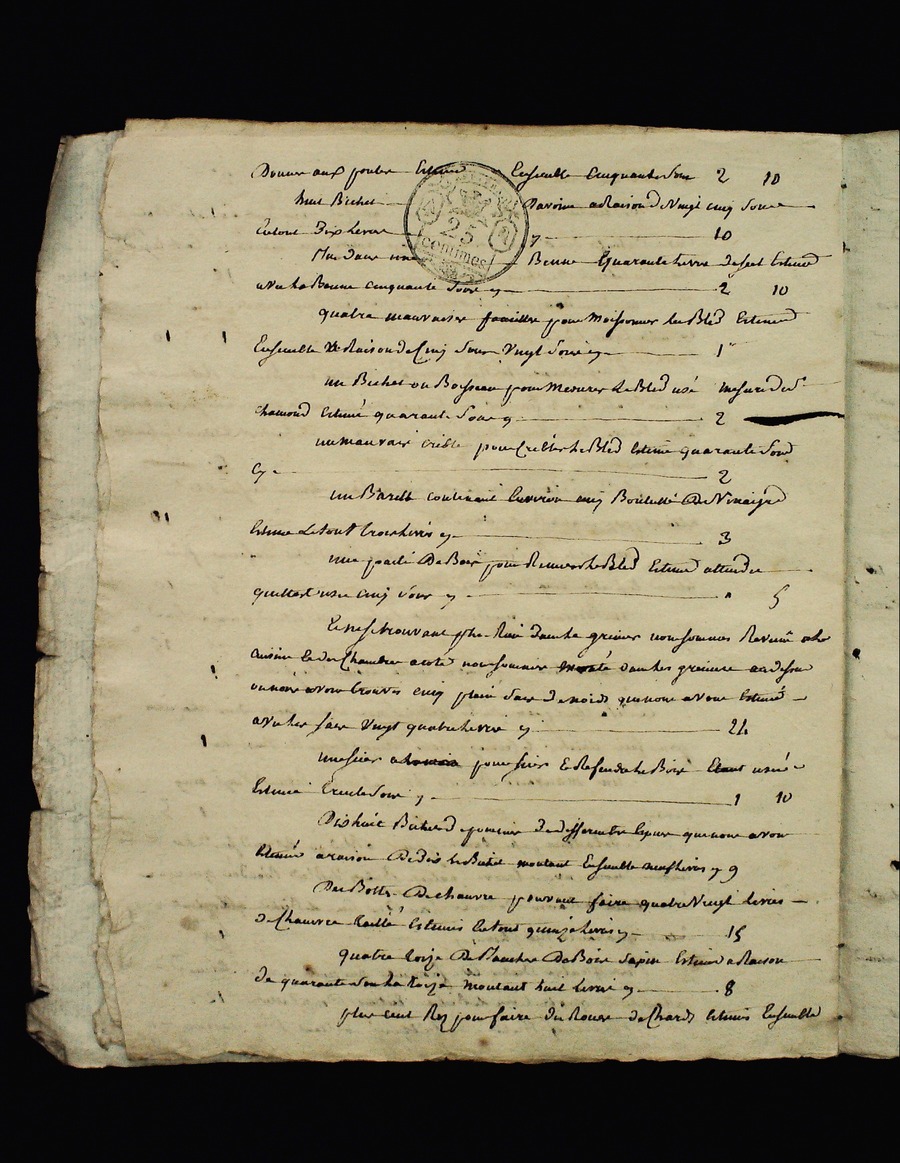 Donner aux poules Estimé Ensemble cinquante sous 2 10
huit Bichet Davoine a Raison de Vingt cinq sous
Entout Dix Livres cy 10
25
centimes
Plus dans une Benne Quarante Livres de sel Estimé
avec La Benne cinquante sous cy 2 10
quatre mauvaises faucilles pour Moissonner les Bled Estimé
Ensemble a Raison de Cinq sous Vingt sous cy 1
un Bichet ou Boisseau pour Mesurer Le Bled usé mesure de St
chamond Estimé quarante sous cy 2
un mauvais crible pour Cribler Le Bled Estimé quarante sous
Cy 2
un Barill contenant Environ cinq Bouteilles De Vinaigre
Estimé Le tout trois Livres cy 3
une paele De Bois pour Remuer Le Bled Estimé attendu
quelle est usée cinq sous cy 5
Et ne se trouvant plus Rien dans Le grenier nous sommes Revenu a la
cuisine Et de la Chambre a coté nous sommes monté dans les greniers au dessus
ou nous avons trouvés cinq plein sacs de noids que nous avons Estimé
avec les sacs Vingt quatre Livres cy 24
une sciee pour scier Et Refendre Le Bois Etant usée
Estimée Trente sous cy 1 10
Dix huit Bichets de pommes de differentes Espece que nous avons
Estimée a raison De dix sous Le Bichet montant Ensemble neuf Livres cy 9
Des Bottes De chanvre pouvant faire quatre Vingt Livres
de Chanvre taillé Estimés Le tout quinze Livres cy 15
quatre toize De Planches De Bois Sapin Estimé a Raison
de quarante sous La toize montant huit Livres cy 8
plus cent Rez pour faire des Roues de Chards Estimés Ensemble